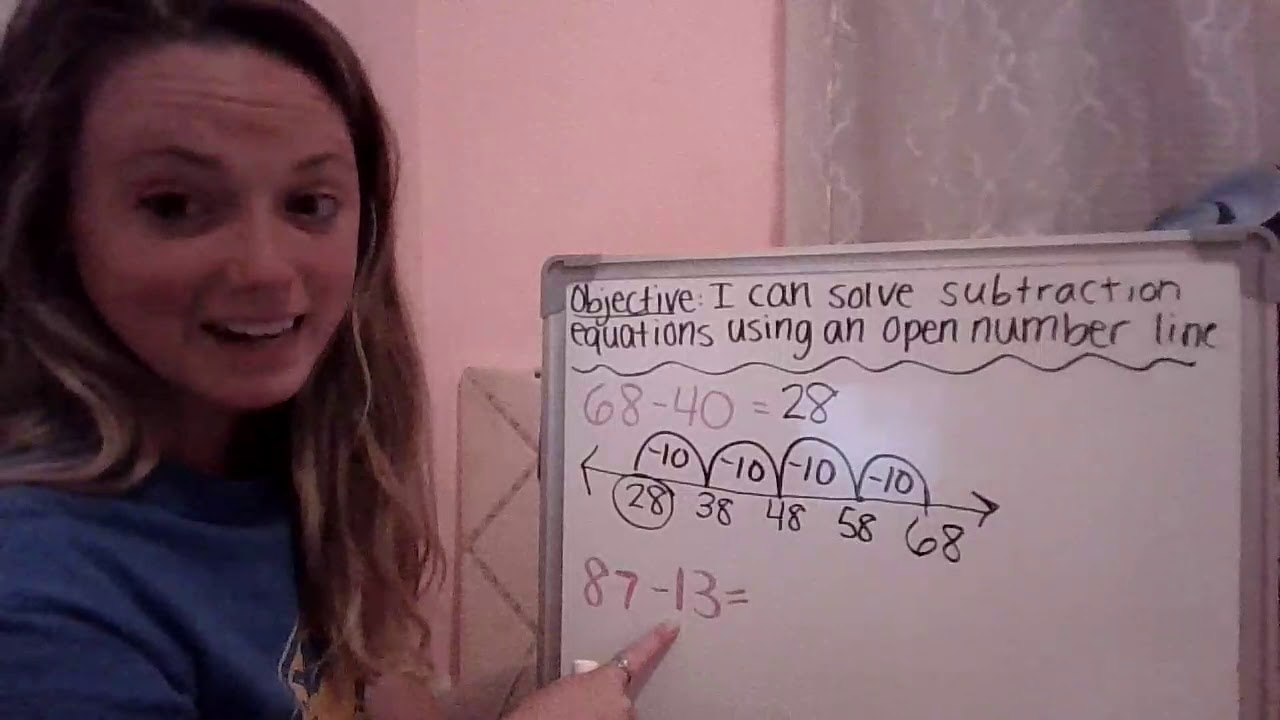 Objective: I can solve subtraction
equations using an open number line
68-40=28
-10 -10 -10 -10
28 38 48 58 68
87-13=